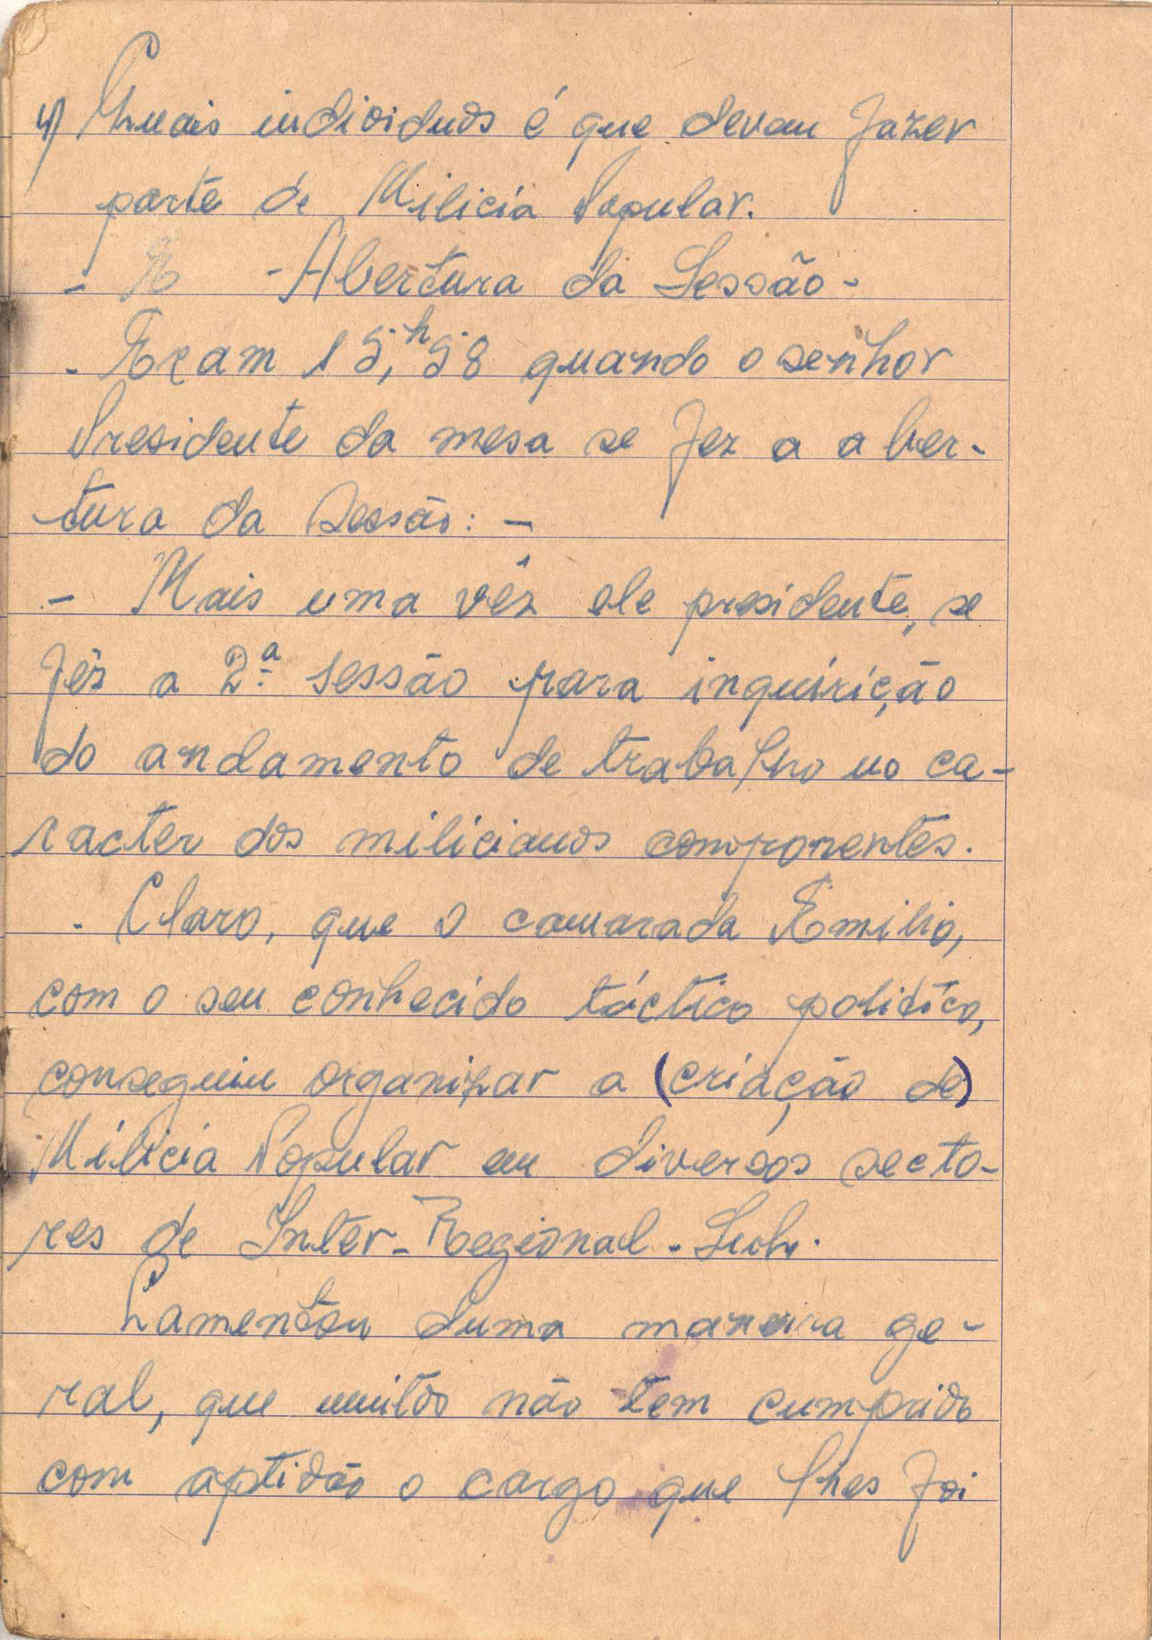 4) Quais individuos é que devem fazer
parte de Milicia Popular.
- Abertura da Sessão -
- Eram 15,h58 quando o senhor
Presidente da mesa se fez a aber-
tura da Sessão: -
- Mais uma vêz ele presidente, se
fêz a 2.ª sessão para inquirição
do andamento de trabalho no ca-
racter dos milicianos componentes.
- Claro, que o camarada Emilio,
com o seu conhecido táctico politico,
conseguiu organizar a (criação de)
Milicia Popular em diversos secto-
res de Inter-Regional-
Lamentou duma maneira ge-
ral, que muitos não tem cumprido
com aptidão o cargo que lhes foi